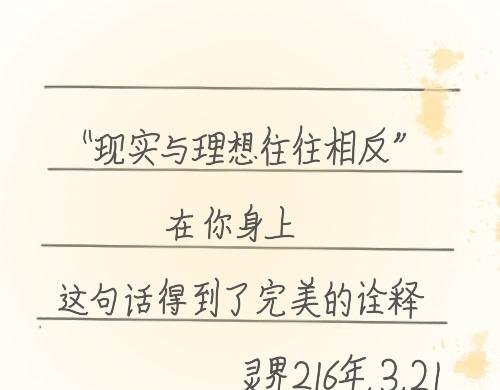 “现实与理想往往相反”
在你身上
这句话得到了完美的诠释
灵界216年.3.21